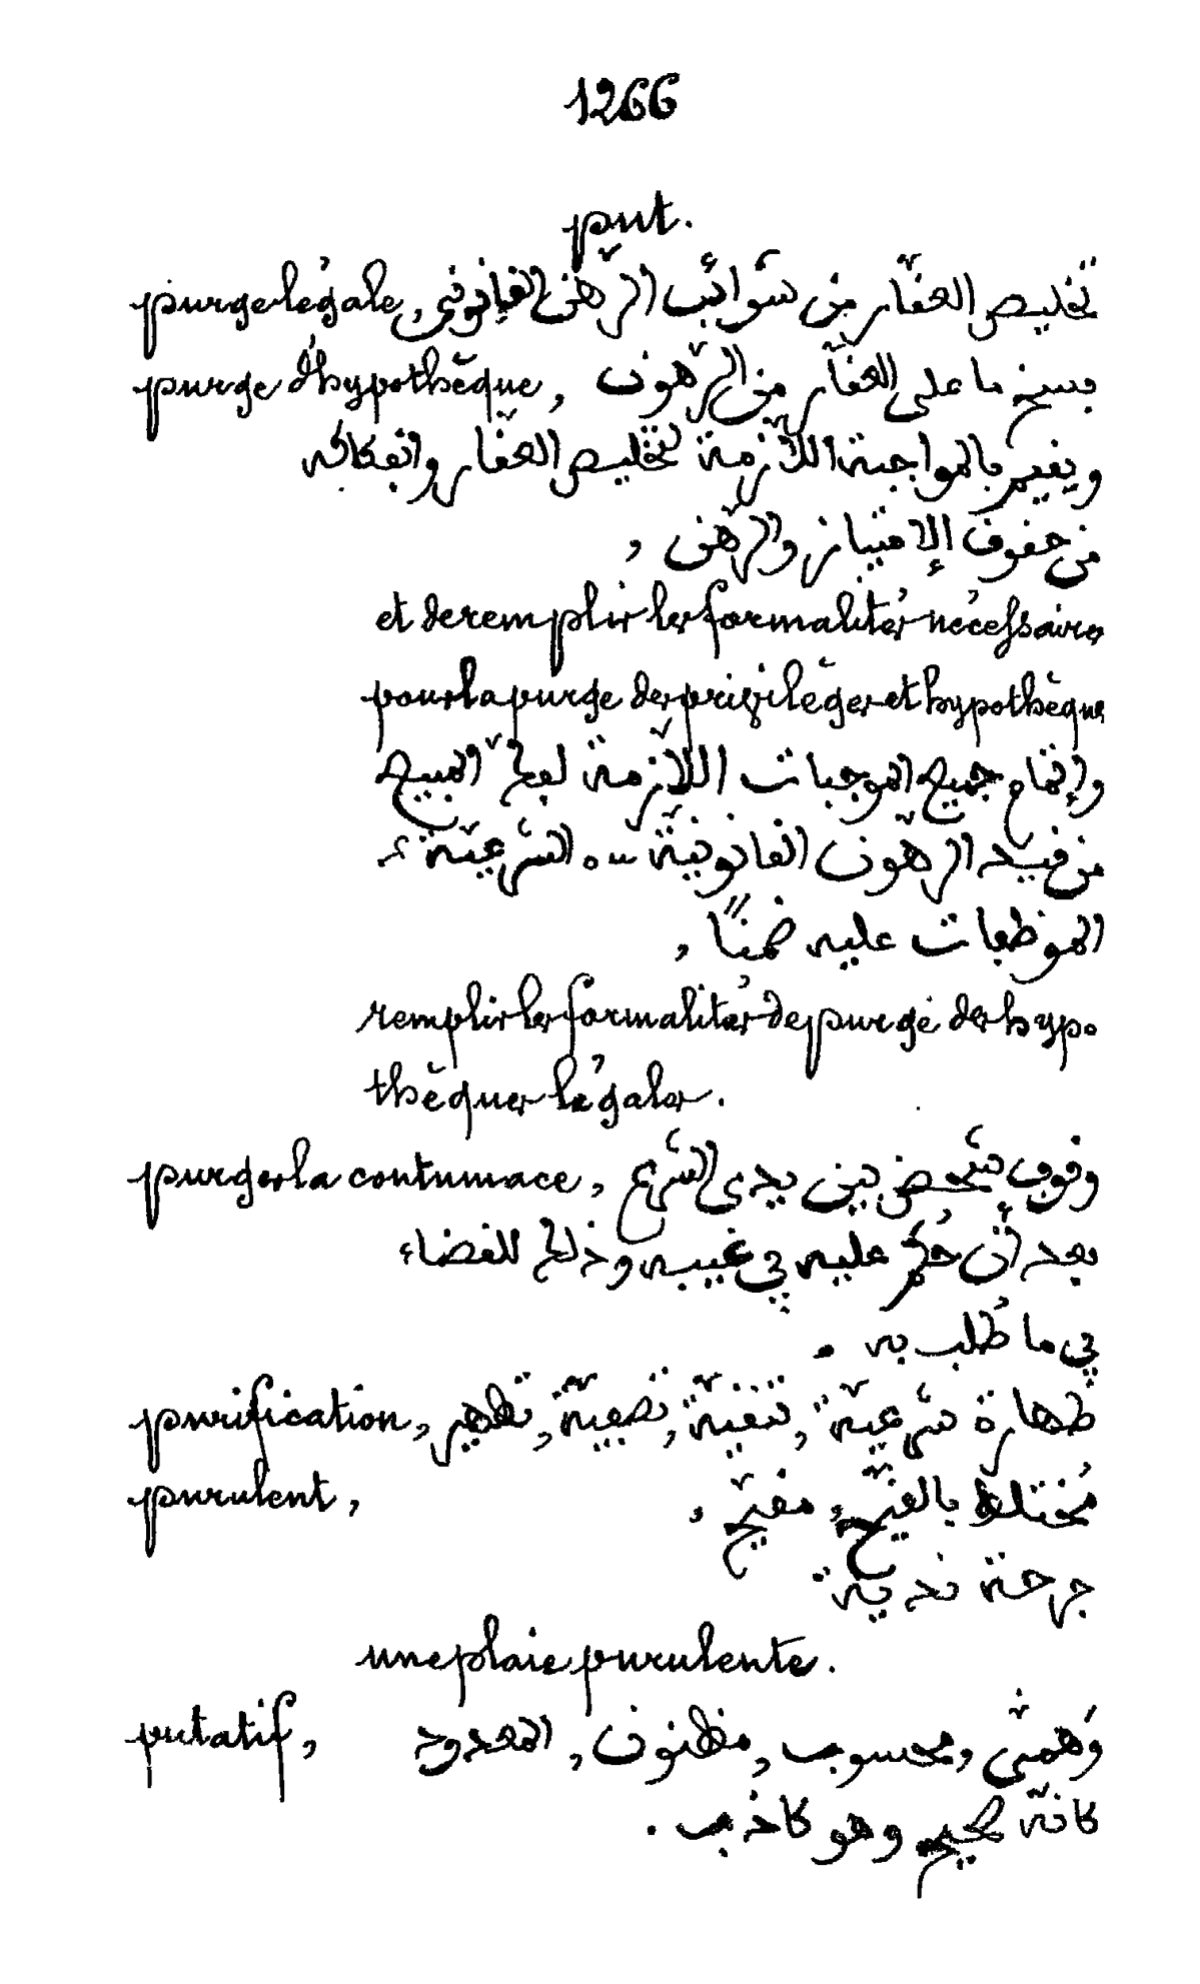 1266
put.
purge légale, تخليص العقّار من شوائب الرّهن القانوني,
purge d'hypothèque, فسخ ما على العقّار من الرّهون
ويقيم بالمواجبة اللّازمة لتخليص العقّار وانفكاكه
من حقوق الإمتياز والرّهن,
et de remplir les formalités nécessaires
pour la purge des privilèges et hypothèques
وإتمام جميع الموجبات اللّازمة لفكّ المبيع
من قيد الرّهون القانونيّة الشرعيّة
الموظّفات عليه ضمنًا,
remplir les formalités de purge des hypo
thèques légales.
purger la contumace, وقوف شخص بين يدي الشّرع
بعد أن حُكم عليه في غيبه وذلك للقضاء
في ما طُلب به.
purification, طهارة شرعيّة, تنقيّة, تصفيّة, تطهير,
purulent, مُختلط بالقيّح, مقيّح,
جرحة نديّة
une plaie purulente.
putatif, وَهميّ, محسوب, مظنون, المعدود
كانّه صحيح وهو كاذب.